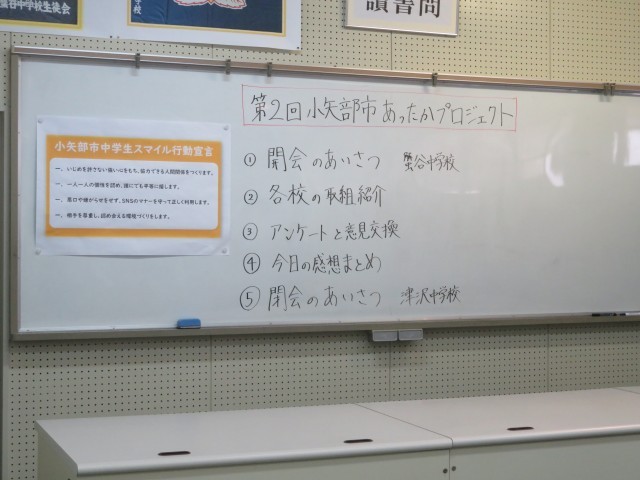 蟹谷中学校生徒会
學校
讀書問
第2回小矢部市あったかプロジェクト
① 開会のあいさつ 蟹谷中学校
② 各校の取組紹介
③ アンケートと意見交換
④ 今日の感想まとめ
⑤ 閉会のあいさつ 津沢中学校
小矢部市中学生スマイル行動宣言
一、いじめを許さない強い心をもち、協力できる人間関係をつくります。
一、一人一人の個性を認め、誰にでも平等に接します。
一、悪口や嫌がらせをせず、SNSのマナーを守って正しく利用します。
一、相手を尊重し、認め合える環境づくりをします。